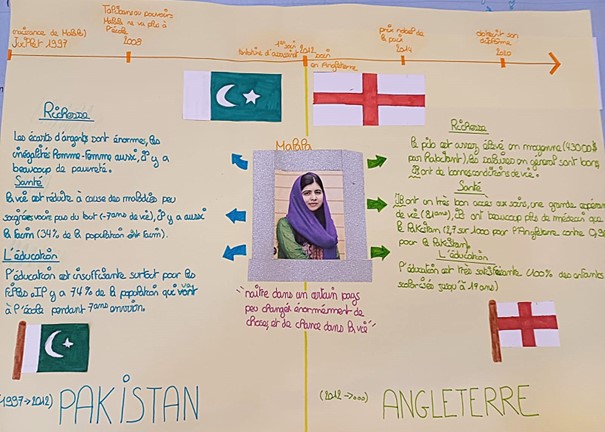 naissance de Malala
Juillet 1997
Talibans au pouvoir:
Malala ne va plus à
l'école
2008
1er soin
tentative d'assassinat
2012
soin
en Angleterre
prix nobel de
la paix
2014
obtient son
diplôme
2020
Richesse
Les écarts d'argents sont énormes, les
inégalités Homme-Femme aussi, il y a
beaucoup de pauvreté.
Santé
la vie est réduite à cause des maladies peu
soignées voir pas du tout (-7ans de vie), il y a aussi
la faim (34% de la population ont faim).
L'éducation
l'éducation est insuffisante surtout pour les
filles. Il y a 74% de la population qui vont
à l'école pendant 7ans environ.
Malala
"naître dans un certain pays
peu changer énormément de
choses, et de chance dans la vie"
Richesse
le pib est assez élevé en moyenne (43000$
par habitant), les salaires en général sont bons
Ils ont de bonnes conditions de vie.
Santé
Ils ont un très bon accès aux soins, une grande espérance
de vie (81ans). Ils ont beaucoup plus de médecin que
la Pakistan (2,7 sur 1000 pour l'Angleterre contre
pour le Pakistan).
L'éducation
l'éducation est très satisfaisante (100% des enfants
scolarisés jusqu'à 19 ans)
(1997→2012) PAKISTAN
(2012→...) ANGLETERRE